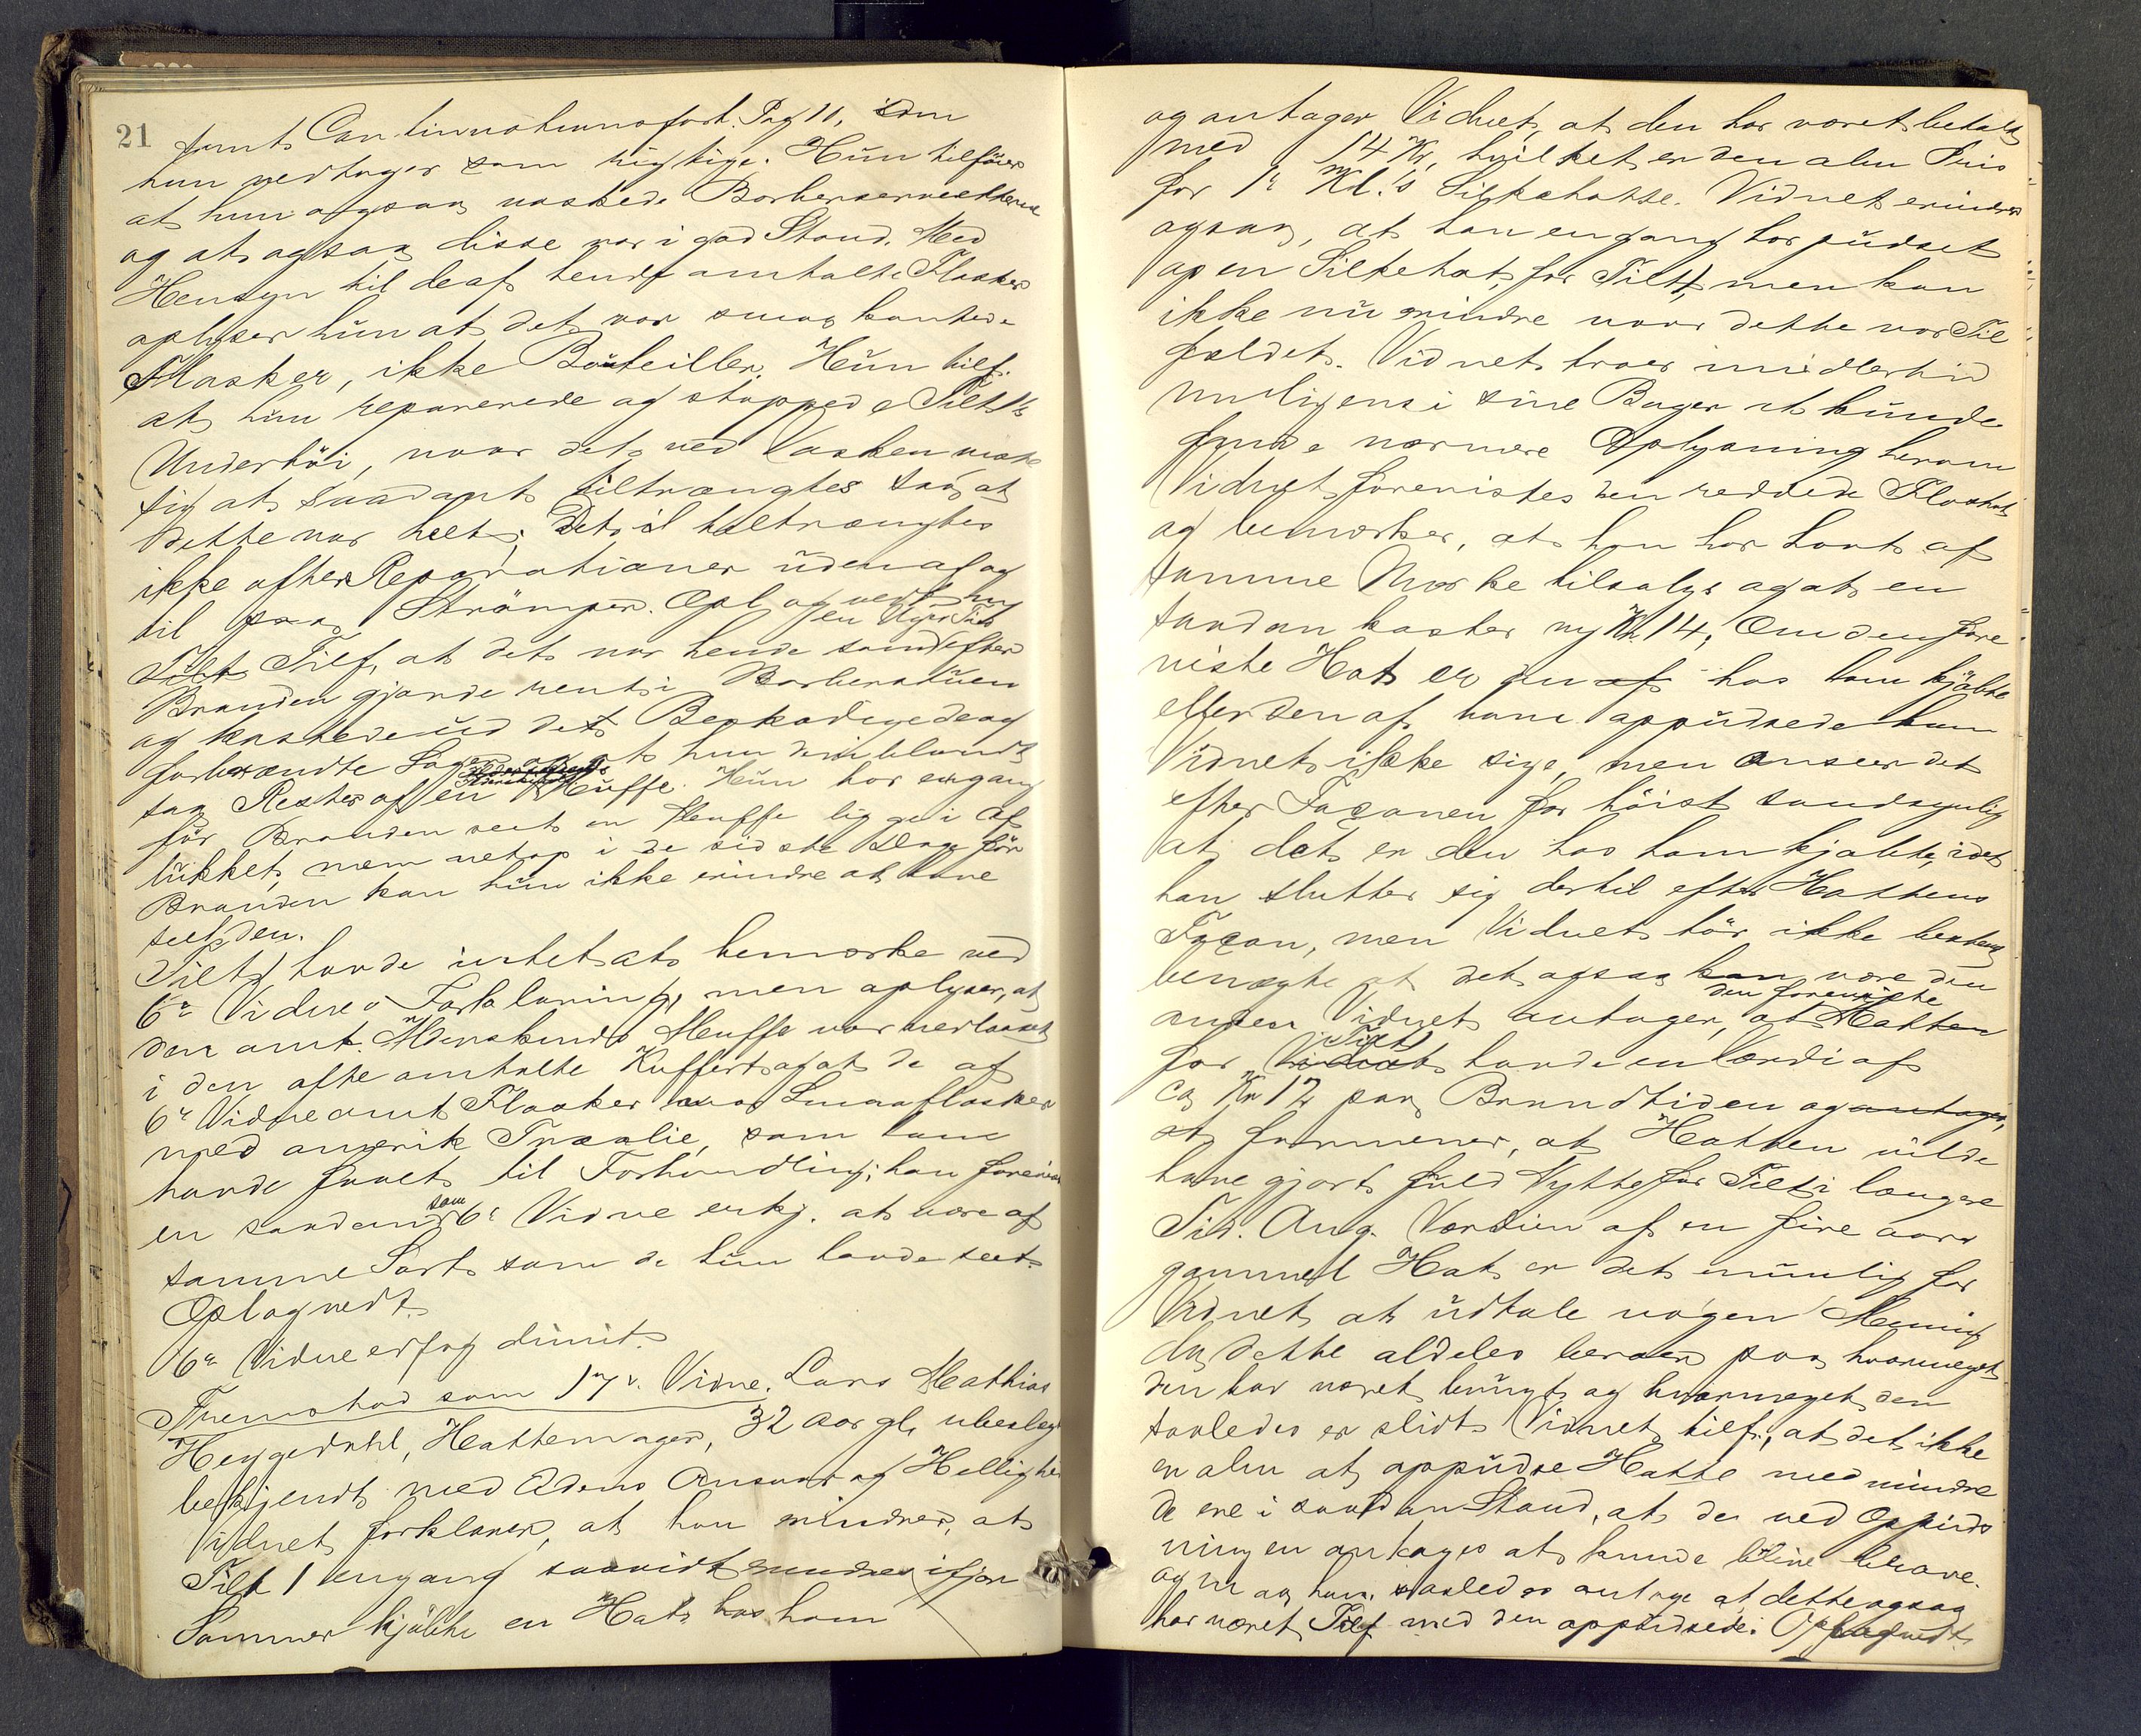 21
samt Continuationsforh. Pag 11, som
hun vedtager som rigtige. Hun tilføier
at hun ogsaa vaskede Barberservietterne
og at ogsaa disse var i god Stand. Med
Hensyn til de af hende omtalte Flasker
oplyser hun at det var smaa kantede
Flasker, ikke Bouteiller. Hun tilf.
at hun reparerede og stoppede Tilt 1s
Undertøi, naar det ved Vasken viste
sig at saadant tiltrængtes saa at
dette var helt; det tiltrængtes
ikke ofte Reparationer uden af og
til paa Strømper. Opl og vedt
en Uges Tid
Tilf. at det var hende som efter
Branden gjorde rent i Barberstuen
og kastede ud det Beskadigede og
forbrændte Sager og at hun deriblandt
saa Rester af en Muffe. Hun har engang
før Branden seet en Muffe ligge i Af
lukket, men netop i de sidste Dage før
Branden kan hun ikke erindre at have
seet den.
Tilt 1 havde intet at bemærke ved
6te Vidnes Forklaring, men oplyser, at
den omt. Muffe var nedlaaset
i den ofte omtalte Kuffert og at de af
6te Vidne omt Flasker var Smaaflasker
med amerik Træolie, som han
havde faaet til Forhandling; han foreviser
en saadan som 6te Vidne erkj. at være af
samme Sort som de hun havde seet.
Opl og vedt.
6te Vidne erfog dimit.
Fremstod som 17de Vidne. Lars Mathias
Heggedahl, Hattemager, 32 Aar gl, ubeslægt
bekjendt med Edens Ansvar og Hellighed
Vidnet forklarer, at han erindrer, at
Tilt 1 engang saavidt erindres ifjor
Sommer kjøbte en Hat hos ham
og antager Vidnet, at den har været betalt
med 14 Kr, hvilket er den alm Pris
for 1ste Kl.'s Silkehatte. Vidnet erindrer
ogsaa, at han engang har pudset
op en Silkehat for Tilt 1, men kan
ikke nu erindre naar dette var Til
fældet. Vidnet troer imidlertid
muligens i sine Bøger at kunde
finde nærmere Oplysning herom
Vidnet forevistes den reddede Floshat
og bemærker, at han har havt af
samme Mærke tilsalgs og at en
saadan koster ny Kr. 14, Om den fore
viste Hat er den hos ham kjøbte
eller den af ham oppudsede kan
Vidnet ikke sige, men anseer det
efter Façonen for høist sandsynlig
at det er den hos ham kjøbte, idet
han slutter sig dertil efter Hattens
Façon, men Vidnet tør ikke bestemt
benægte at det ogsaa kan være den
anden Vidnet antager, at den foreviste Hatten
for Tilt 1 havde en Værdi af
ca Kr 12 paa Brandtiden og antager,
at formener, at Hatten vilde
have gjort fuld Nytte for Tilt i længere
Tid. Ang. Værdien af en fire aars
gammel Hat er det umulig for
Vidnet at udtale nogen Mening
da dette aldeles beroer paa hvormeget
den har været brugt og hvormeget den
saaledes er slidt. Vidnet tilf., at det ikke
er alm at oppudse Hatte med mindre
de ere i saadan Stand, at de ved Oppuds
ningen antages at kunde blive brave.
og maa han saaledes antage at dette ogsaa
har været Tilf med den oppudsede. Opl og vedt.